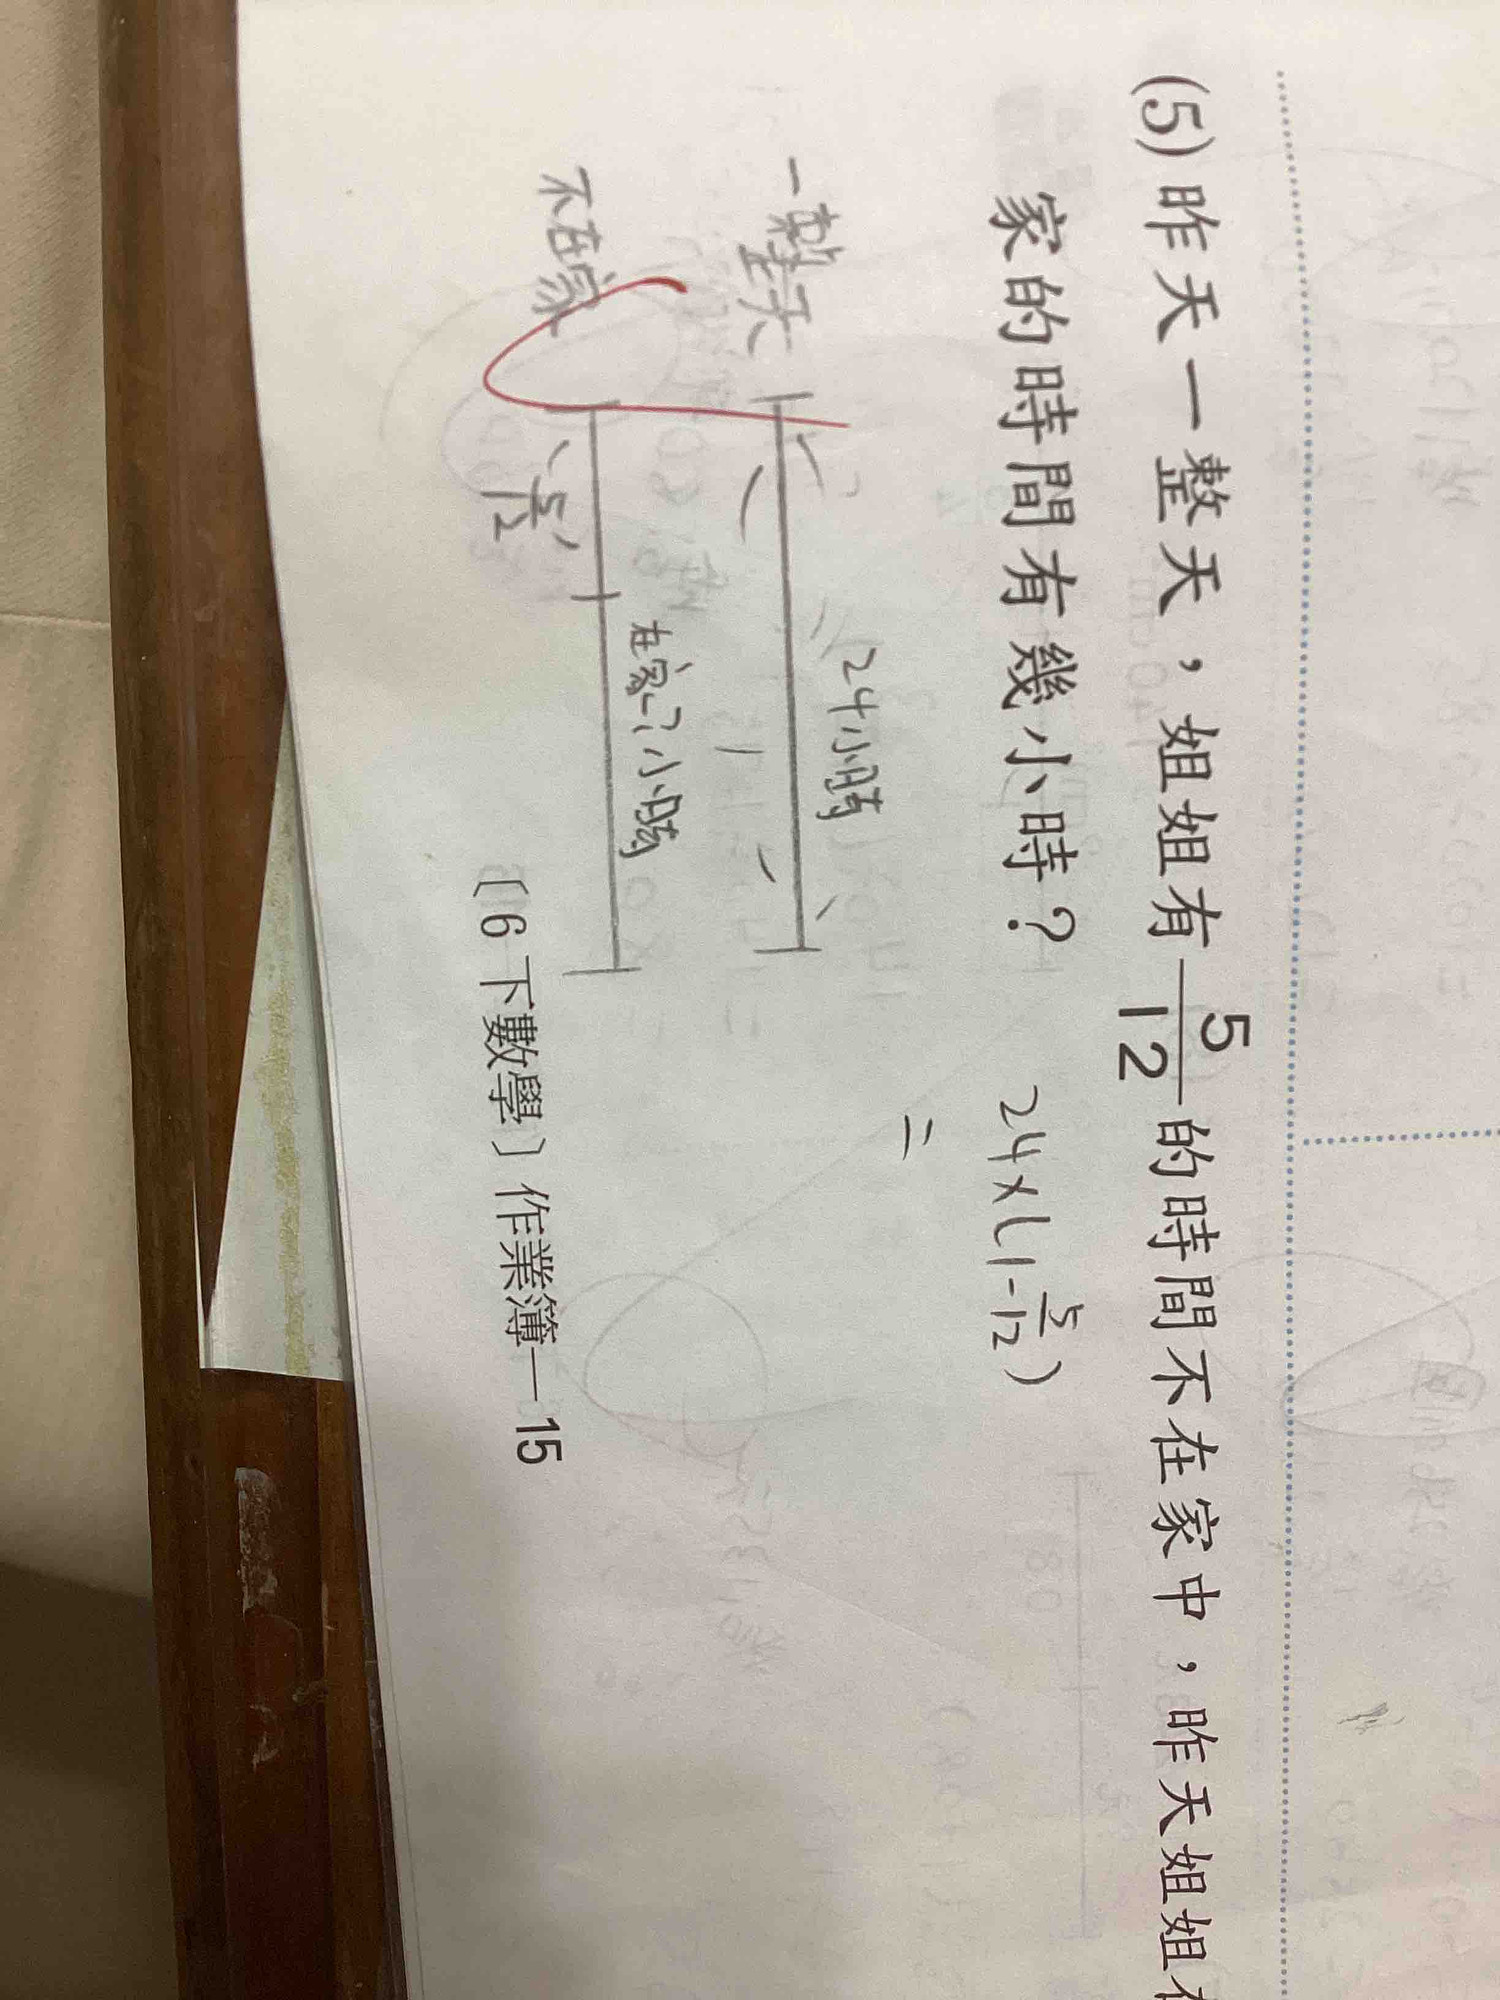 (5)昨天一整天，姐姐有5/12的時間不在家中，昨天姐姐在
家的時間有幾小時？
24×(1-5/12)
=
24小時
一整天
1
在家?小時
不在家
5/12
〔6下數學〕作業簿—15